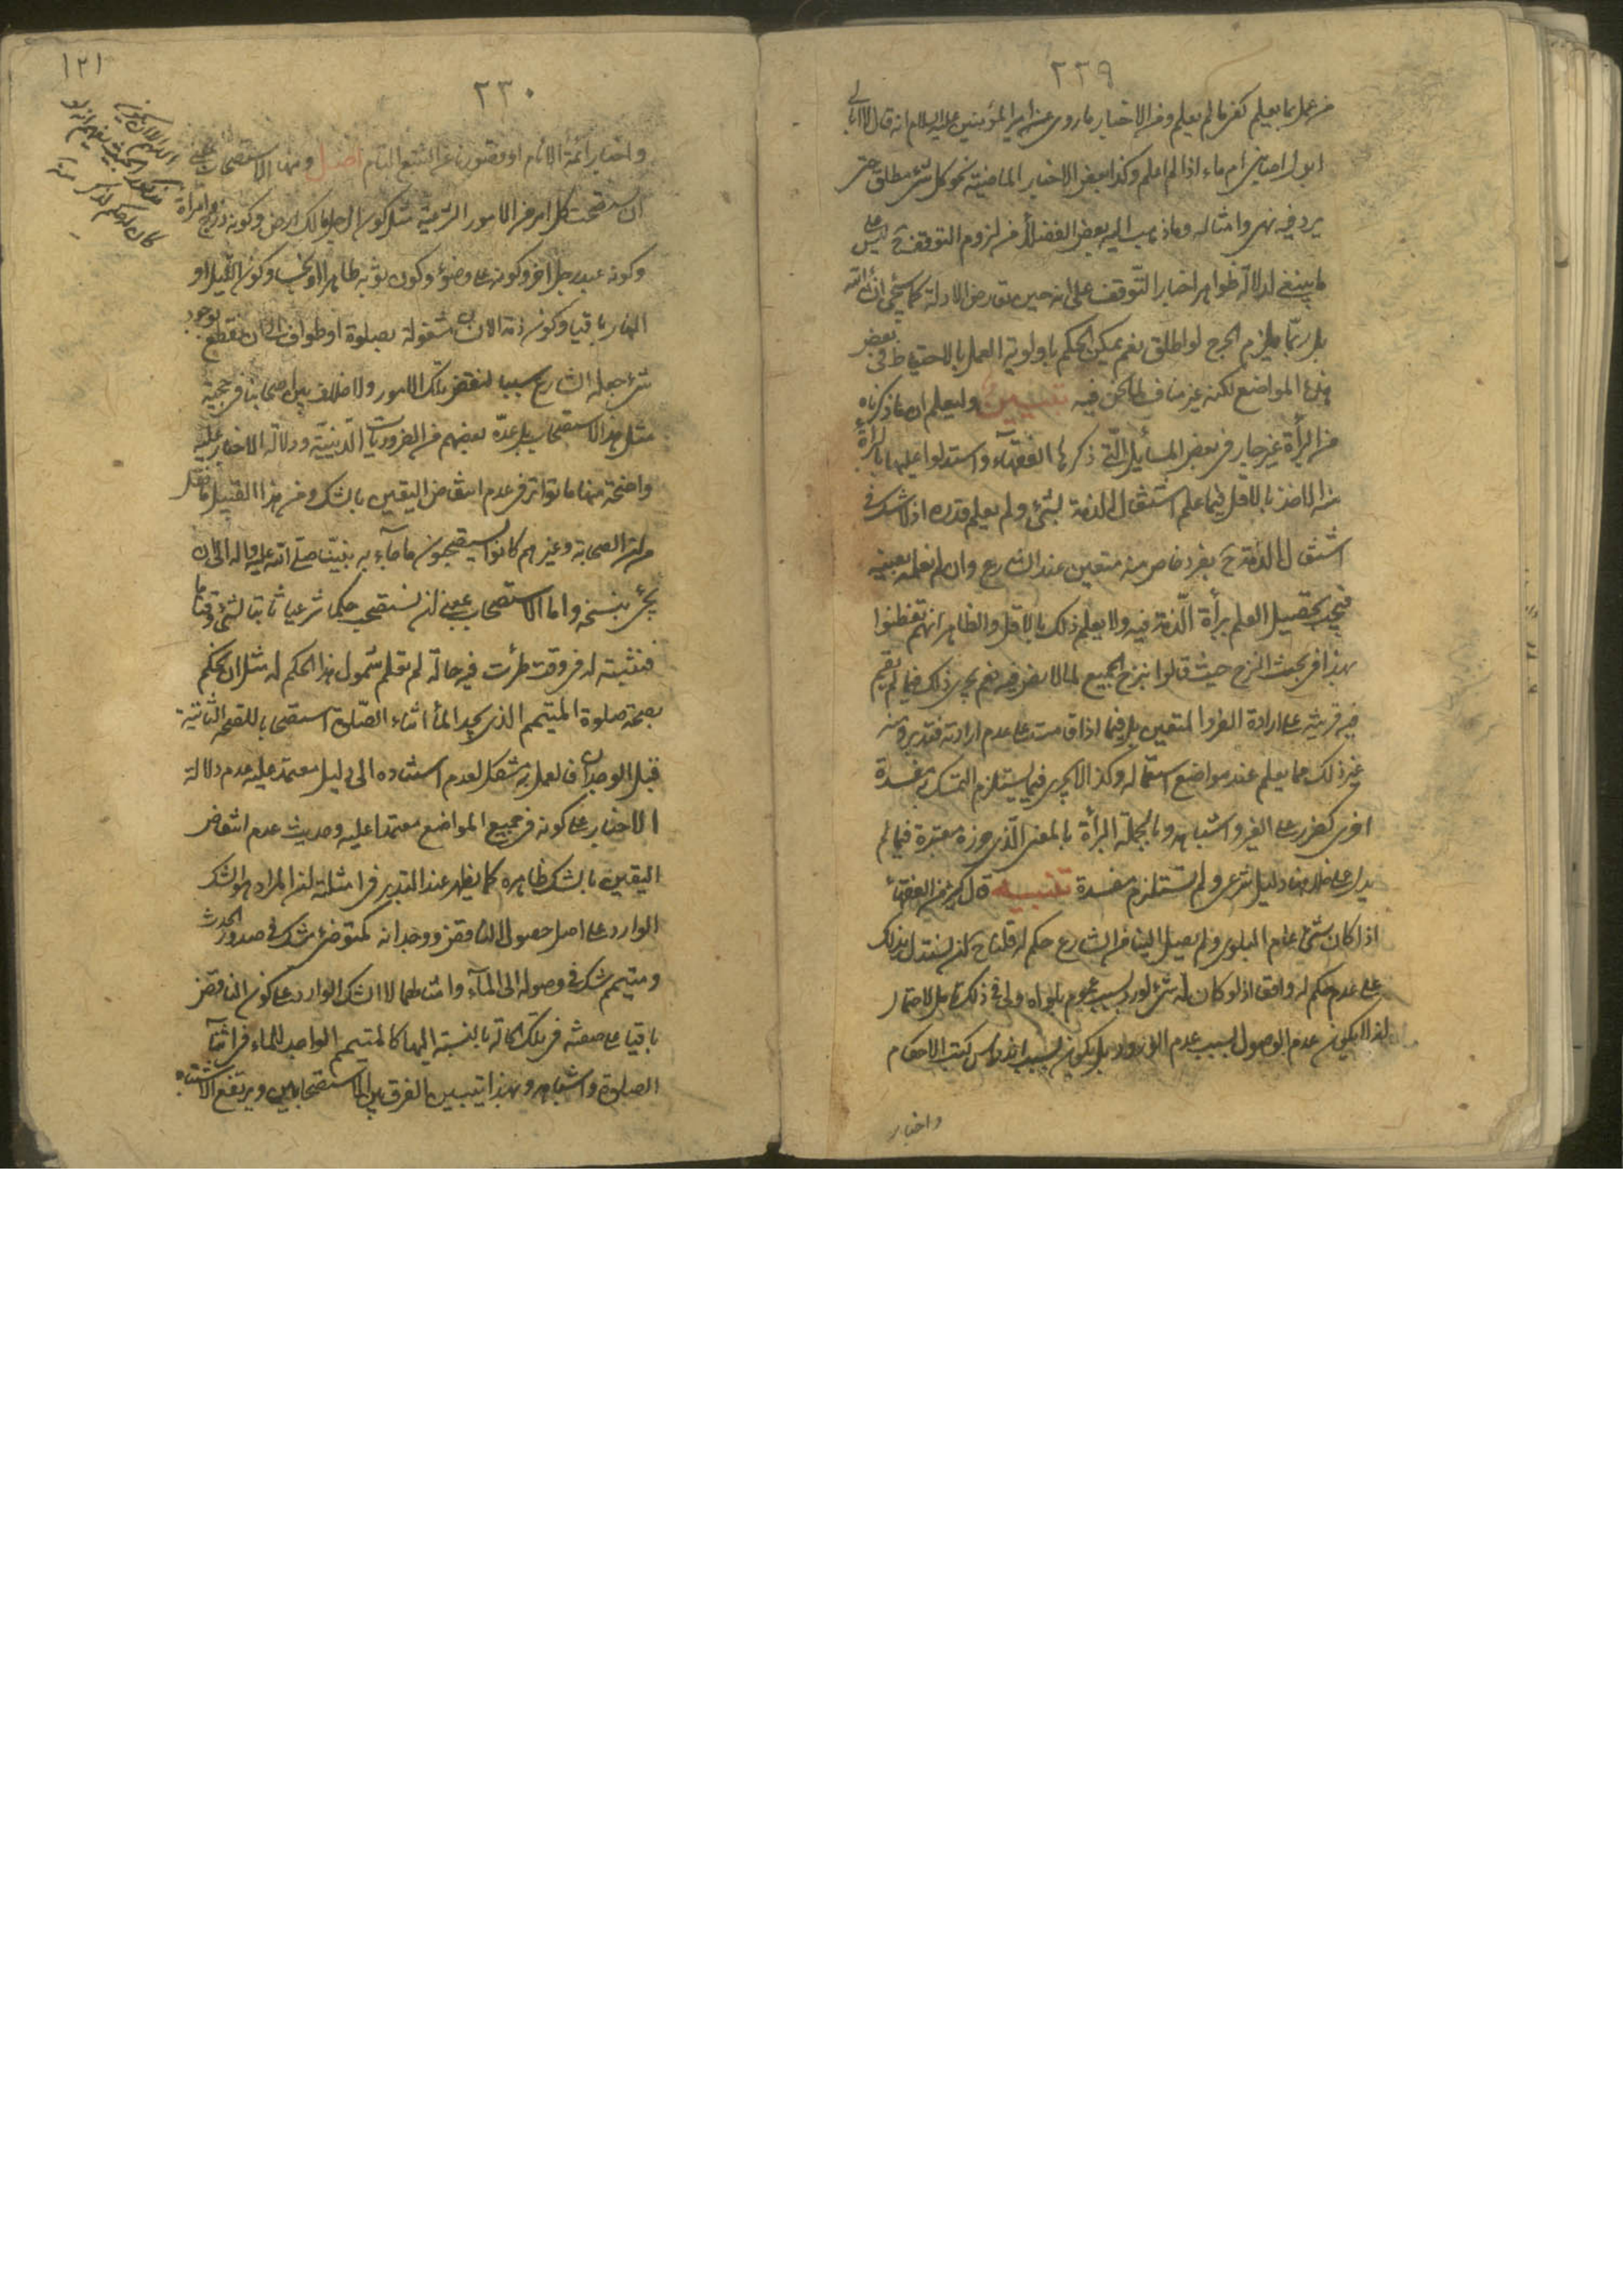 ٢٢٩
من عمل بما يعلم كفى ما لم يعلم ومن الاخبار ما روى عن أمير المؤمنين عليه السلام انه قال لا ابالى
ابول اصابنى ام ماء اذا لم اعلم وكذا بعض الاخبار الماضية نحو كل شئ مطلق حتى
يرد فيه نهى وامثاله وما ذهب اليه بعض الفضلاء من لزوم التوقف ح ليس على
ما ينبغى لدلالة ظواهر اخبار التوقف على انه حين تعارض الادلة كما سيجئ ان شاء الله
بل ربما يلزم الحرج لو اطلق نعم يمكن الحكم باولوية العمل بالاحتياط فى بعض
هذه المواضع لكنه غير مناف لما نحن فيه تبيين وليعلم ان ما ذكرناه
من البرأة غير جار فى بعض المسائل التى ذكرها الفقهاء واستدلوا عليها بالبرأة
منه الاخذ بالاقل فيما علم اشتغال الذمة بشئ ولم يعلم قدره اذ لا شك فى
اشتغال الذمة ح بفرد خاص منه متعين عند الشارع وان لم نعلمه بعينه
فيجب تحصيل العلم ببرأة الذمة فيه ولا يعلم ذلك بالاقل والظاهر انهم تفطنوا
بهذا فى بحث النزح حيث قالوا بنزح الجميع لما لا نص فيه نعم يجرى ذلك فيما لم يقم
فيه قرينة على ارادة الفرد المتعين بل فيما اذا قامت على عدم ارادته فتدبر ومنه
غير ذلك مما يعلم عند مواضع استعماله وكذا لا يجرى فيما يستلزم التمسك به مفسدة
اخرى كضرر على الغير واشباهه وبالجملة البرأة بالمعنى الذى حرره معتبرة فيما لم
يدل على خلافها دليل شرعى ولم تستلزم مفسدة تنبيه قال كثير من الفقهاء
اذا كان شئ عام البلوى ولم يصل الينا من الشارع حكم له قلنا ح ان نستدل بذلك
على عدم حكم له واقعا اذ لو كان له شئ لورد بسبب عموم بلواه ولى فى ذلك تأمل لاحتمال
ان لا يكون عدم الوصول بسبب عدم الورود بل يكون بسبب اندراس كتب الاحكام
واخبار
١٢١
٢٣٠
واخبار ائمة الانام او قصورنا عن التتبع التام اصل ومنها الاستصحاب على
ان يستصحب كل امر من الامور الشرعية مثل كون الرجل مالك ارض وكونه زوج امرأة
وكونه عبد رجل اخر وكونه على وضوء وكون ثوبه طاهرا او نجسا وكون الليل او
النهار باقيا وكون ذمة الانسان مشغولة بصلوة او طواف الى ان نقطع بوجود
شئ جعله الشارع سببا لنقض تلك الامور ولا خلاف بين اصحابنا فى حجية
مثل هذا الاستصحاب بل عدّه بعضهم من الضروريات الدينية ودلالة الاخبار عليه
واضحة منها ما تواتر فى عدم انتقاض اليقين بالشك ومن هذا القبيل ما نقل
من ان الصحابة وغيرهم كانوا يستصحبون ما جاء به نبينا صلى الله عليه واله الى ان
يجئ بنسخه واما الاستصحاب بمعنى ان نستصحب حكما شرعيا ثابتا لشئ وقتا ما
فنثبته له فى وقت طرأت فيه حالة لم نعلم شمول هذا الحكم له مثل ان نحكم
بصحة صلوة المتيمم الذى يجد الماء اثناء الصلوة استصحابا للصحة الثابتة
قبل الوجدان فالعمل به مشكل لعدم استناده الى دليل معتمد عليه وعدم دلالة
الاخبار على كونه فى جميع المواضع معتمدا عليه وحديث عدم انتقاض
اليقين بالشك ظاهره كما يظهر عند التدبر فى امثلته ان المراد هو الشك
الوارد على اصل حصول الناقض ووجدانه كمتوضئ شك فى صدور الحدث
ومتيمم شك فى وصوله الى الماء وامثالهما لا الشك الوارد على كون الناقض
باقيا على صفته فى تلك الحالة بالنسبة اليها كالمتيمم الواجد للماء فى اثناء
الصلوة واشباهه وبهذا يتبين الفرق بين الاستصحابين ويرتفع الاشتباه
اللهم الا ان يكون
الحديث يفهم انه لو
كان له حكم لذكر منه